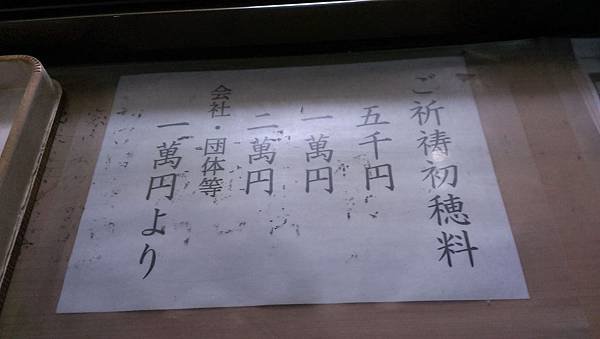 ご祈祷初穂料
五千円
一萬円
二萬円
会社・団体等
一萬円より